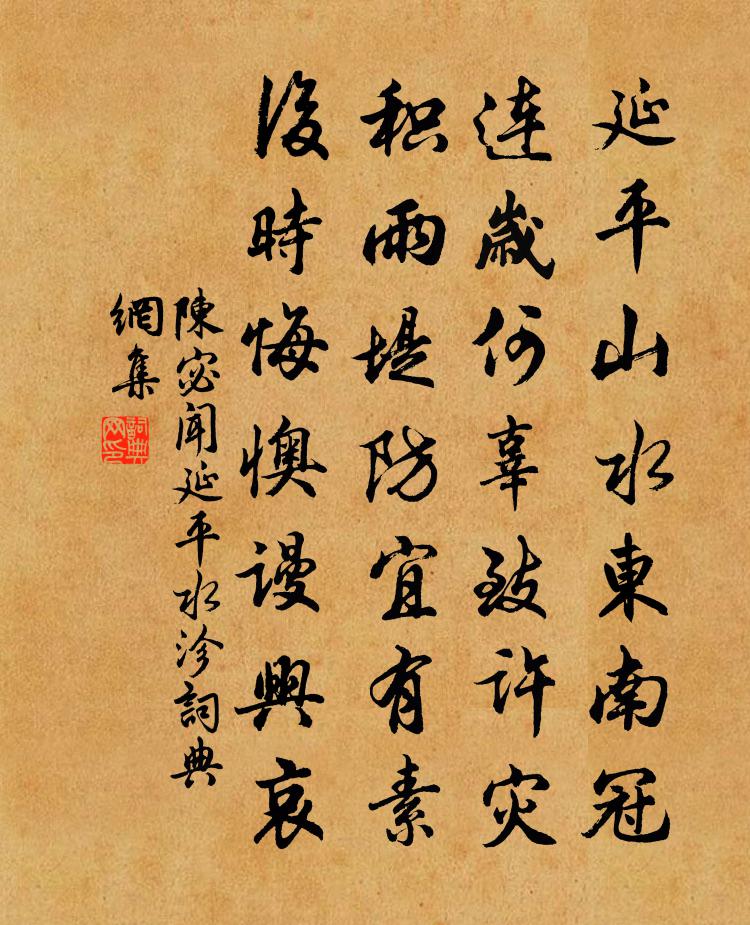 延平山水東南冠
連歲何辜致許灾
积雨堤防宜有素
後時悔懊謾興哀
陳宓聞延平水沴詞典
網集
詞典
网印